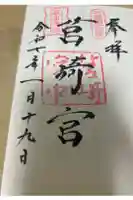 奉拝
筥崎宮
令和七年一月十九日